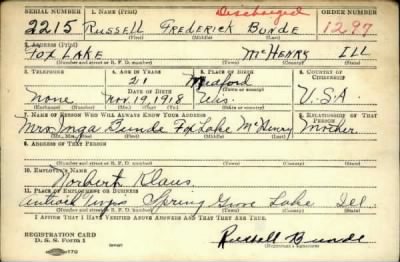 SERIAL NUMBER 1. NAME (Print) Discharged ORDER NUMBER
2215 RUSSELL FREDERICK BUNDE 1297
(First) (Middle) (Last)
2. ADDRESS (Print)
FOX LAKE McHENRY ILL
(Number and street or R. F. D. number) (Town) (County) (State)
3. TELEPHONE 4. AGE IN YEARS 5. PLACE OF BIRTH 6. COUNTRY OF CITIZENSHIP
21 Medford
DATE OF BIRTH (Town or county)
None Nov. 19, 1918 Wis. U.S.A.
(Exchange) (Number) (Mo.) (Day) (Yr.) (State or country)
7. NAME OF PERSON WHO WILL ALWAYS KNOW YOUR ADDRESS 8. RELATIONSHIP OF THAT PERSON
Mrs. Inga Bunde Fox Lake McHenry Mother
(Mr., Mrs., Miss) (First) (Middle) (Last)
9. ADDRESS OF THAT PERSON
(Number and street or R. F. D. number) (Town) (County) (State)
10. EMPLOYER'S NAME
Norbert Klaus
11. PLACE OF EMPLOYMENT OR BUSINESS
Antioch Spring Grove Lake Ill.
(Number and street or R. F. D. number) (Town) (County) (State)
I AFFIRM THAT I HAVE VERIFIED ABOVE ANSWERS AND THAT THEY ARE TRUE.
REGISTRATION CARD
D. S. S. Form 1
Russell Bunde
(Registrant's signature)